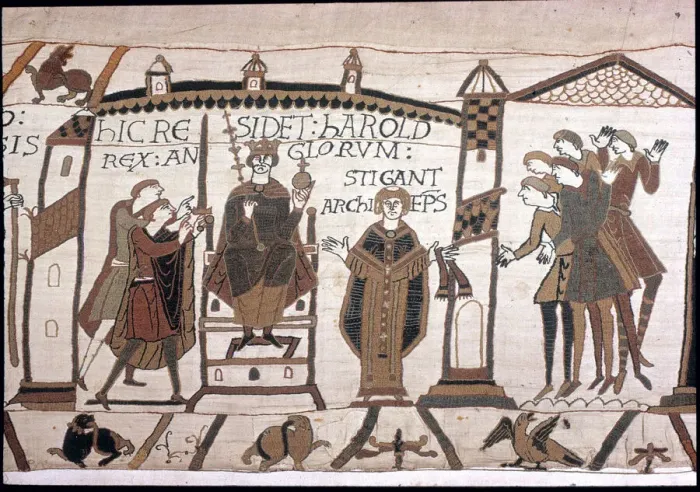 O:
SIS
hIC RE SIDET: hAROLD
REX: AN GLORVM:
STIGANT
ARChI EP̄S